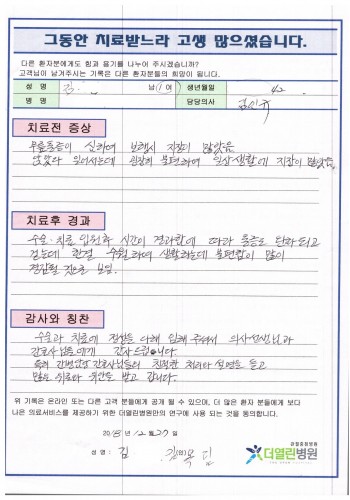 그동안 치료받느라 고생 많으셨습니다.
다른 환자분에게도 힘과 용기를 나누어 주시겠습니까?
고객님이 남겨주시는 기록은 다른 환자분들의 희망이 됩니다.
성 명 김 남(여) 생년월일 42.
병 명 담당의사
치료전 증상
무릎통증이 심하여 보행시 지장이 많았음
앉았다 일어서는데 굉장히 불편하여 일상생활에 지장이 많았음
치료후 경과
수술·치료 입원하 시간이 경과함에 따라 통증도 완화되고
걷는데 한결 수월하여 생활하는데 불편함이 많이
경감될 것으로 보임.
감사와 칭찬
수술과 치료에 정성을 다해 임해주셔서 의사선생님과
간호사님들에게 감사드립니다
특히 간병인 간호사님들의 친절한 처리와 설명을 듣고
많은 위로와 위안을 받고 갑니다.
위 기록은 온라인 또는 다른 고객 분들에게 공개 될 수 있으며, 더 많은 환자 분들에게 보다
나은 의료서비스를 제공하기 위한 더열린병원만의 연구에 사용 되는 것을 동의합니다.
2018년 12월 27일
성 명 : 김
관절척추병원
더열린병원